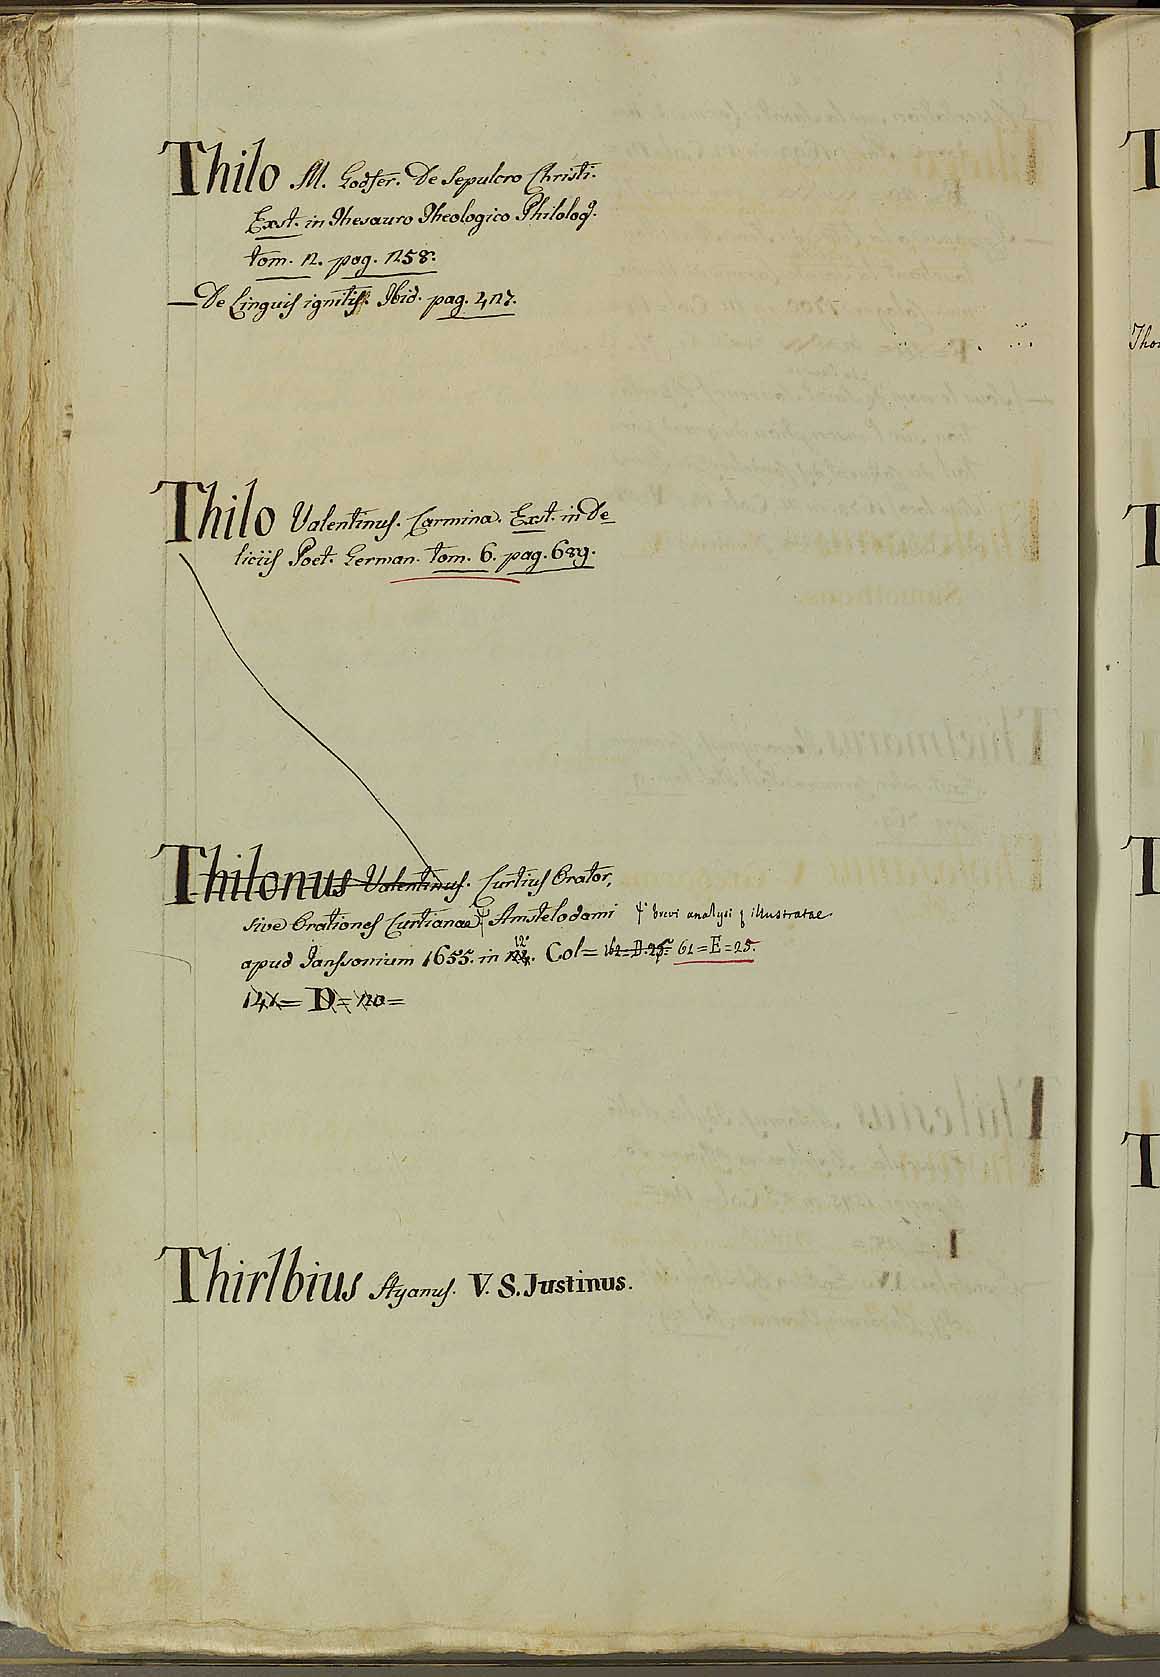 Thilo M. Godfr. De Sepulcro Christi.
Exst. in Thesauro Theologico Philolog.
tom. 2. pag. 258.
— De Linguis ignitis. Ibid. pag. 427.
Thilo Valentinus. Carmina. Exst. in De_
liciis Poet. German. tom. 6. pag. 689.
Thilonus Valentinus. Curtius Orator,
sive Orationes Curtianae, Amstelodami brevi analysi illustratae
apud Janssonium 1655. in 12° Col= 162=D.25= 61=E=25.
141=D=120=
Thirlbius Styanus. V. S. Justinus.